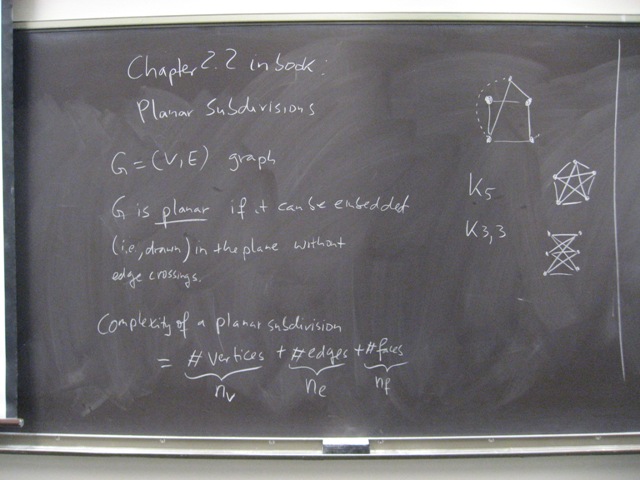 Chapter 2.2 in book:
Planar Subdivisions
G = (V, E) graph
G is planar if it can be embedded
(i.e., drawn) in the plane without
edge crossings.
Complexity of a planar subdivision
= # vertices + # edges + # faces
nv ne nf
K5
K3,3